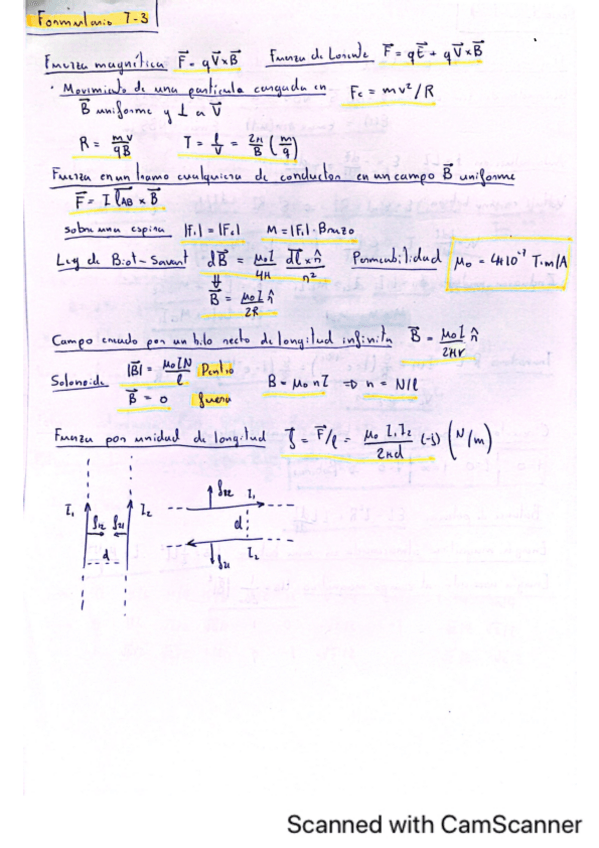 Formulario T-3
Fuerza magnética F⃗ = qV⃗×B⃗ Fuerza de Lorentz F⃗ = qE⃗ + qV⃗×B⃗
· Movimiento de una partícula cargada en Fc = mv²/R
B⃗ uniforme y ⊥ a V⃗
R = mv/qB T = l/V = 2π/B (m/q)
Fuerza en un tramo cualquiera de conductor en un campo B⃗ uniforme
F⃗ = I l⃗AB × B⃗
sobre una espira |F₁| = |F₂| M = |F₁| · Brazo
Ley de Biot-Savart dB⃗ = μ₀I/4π dl⃗×r̂/r² Permeabilidad μ₀ = 4π10⁻⁷ T·m/A
⇓
B⃗ = μ₀I/2R n̂
Campo creado por un hilo recto de longitud infinita B⃗ = μ₀I/2πr n̂
Solenoide |B⃗| = μ₀IN/l Dentro B = μ₀nI ⇒ n = N/l
B⃗ = 0 fuera
Fuerza por unidad de longitud f⃗ = F⃗/l = μ₀ I₁I₂/2πd (-j) (N/m)
I₁ f₁₂ f₂₁ I₂ d
f₁₂ I₁
d
I₂
f₂₁
Scanned with CamScanner